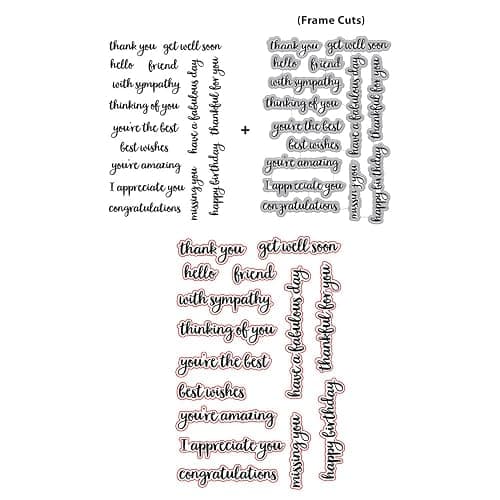 (Frame Cuts)
thank you get well soon
hello friend
with sympathy
thinking of you
you're the best
best wishes
you're amazing
I appreciate you
congratulations
have a fabulous day
thankful for you
missing you
happy birthday
+
thank you get well soon
hello friend
with sympathy
thinking of you
you're the best
best wishes
you're amazing
I appreciate you
congratulations
have a fabulous day
thankful for you
missing you
happy birthday
thank you get well soon
hello friend
with sympathy
thinking of you
you're the best
best wishes
you're amazing
I appreciate you
congratulations
have a fabulous day
thankful for you
missing you
happy birthday